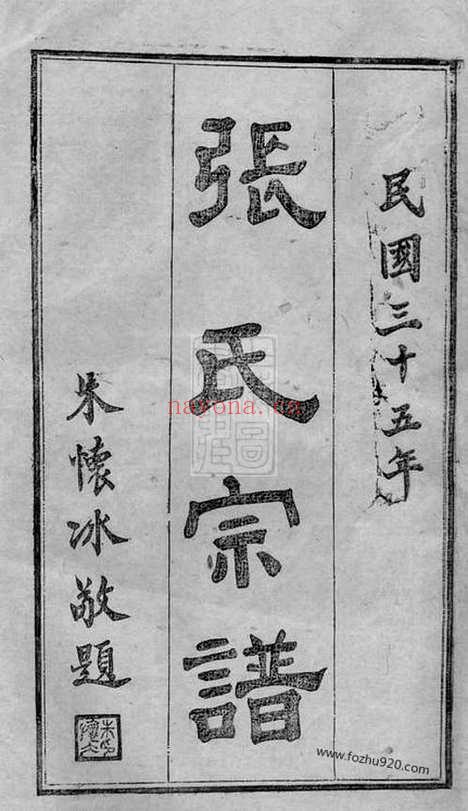 民國三十五年
張氏宗譜
朱懷冰敬題
nayona.ca
www.fozhu920.com